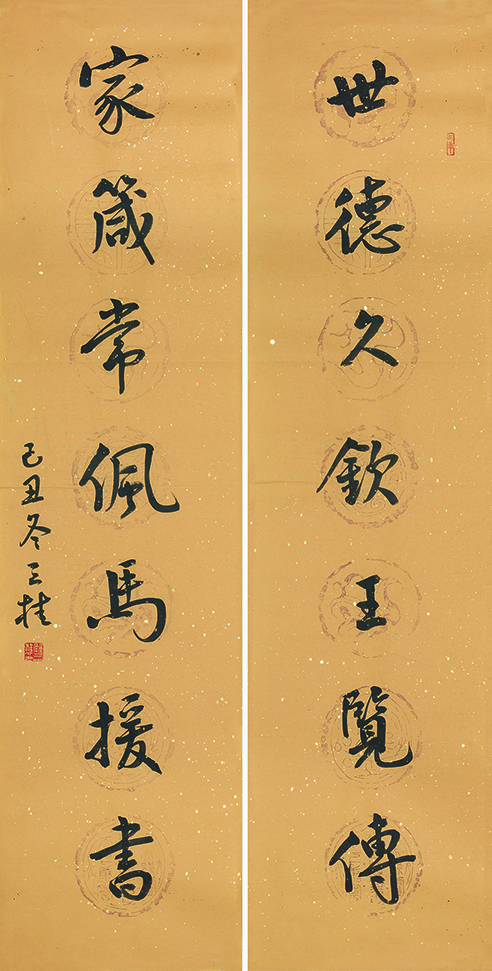 世德久欽王覽傳
家箴常佩馬援書
己丑冬三桂